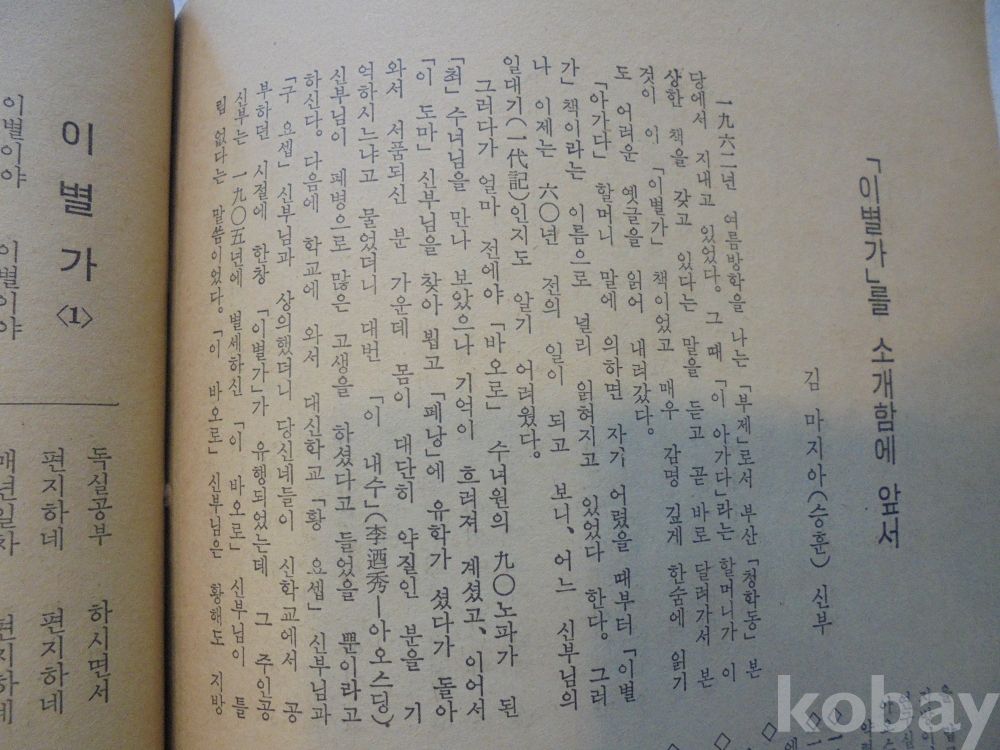 「이별가」를 소개함에 앞서
김 마지아(승훈) 신부
一九六二년 여름방학을 나는 「부제」로서 부산 「청학동」 본
당에서 지내고 있었다. 그 때 「이 아가다」라는 할머니가 이
상한 책을 갖고 있다는 말을 듣고 곧 바로 달려가서 본
것이 이 「이별가」 책이었고 매우 감명 깊게 한숨에 읽기
도 어려운 옛글을 읽어 내려갔다.
「아가다」 할머니 말에 의하면 자기 어렸을 때부터 「이별
가」 책이라는 이름으로 널리 읽혀지고 있었다 한다. 그러
나 이제는 六〇년 전의 일이 되고 보니、어느 신부님의
일대기(一代記)인지도 알기 어려웠다.
그러다가 얼마 전에야 「바오로」 수녀원의 九〇노파가 된
「최」수녀님을 만나 보았으나 기억이 흐려져 계셨고、이어서
「이 도마」 신부님을 찾아 뵙고 「페낭」에 유학가 셨다가 돌아
와서 서품되신 분 가운데 몸이 대단히 약질인 분을 기
억하시느냐고 물었더니 대번 「이 내수」(李迺秀—아오스딩)
신부님이 폐병으로 많은 고생을 하셨다고 들었을 뿐이라고
하신다. 다음에 학교에 와서 대신학교 「황 요셉」 신부님과
「구 요셉」 신부님과 상의했더니 당신네들이 신학교에서 공
부하던 시절에 한창 「이별가」가 유행되었는데 그 주인공
신부는 一九〇五년에 별세하신 「이 바오로」 신부님이 틀
림 없다는 말씀이었다. 「이 바오로」 신부님은 황해도 지방
이 별 가 〈1〉
이별이야 이별이야
독실공부 하시면서
편지하네 편지하네
kobay